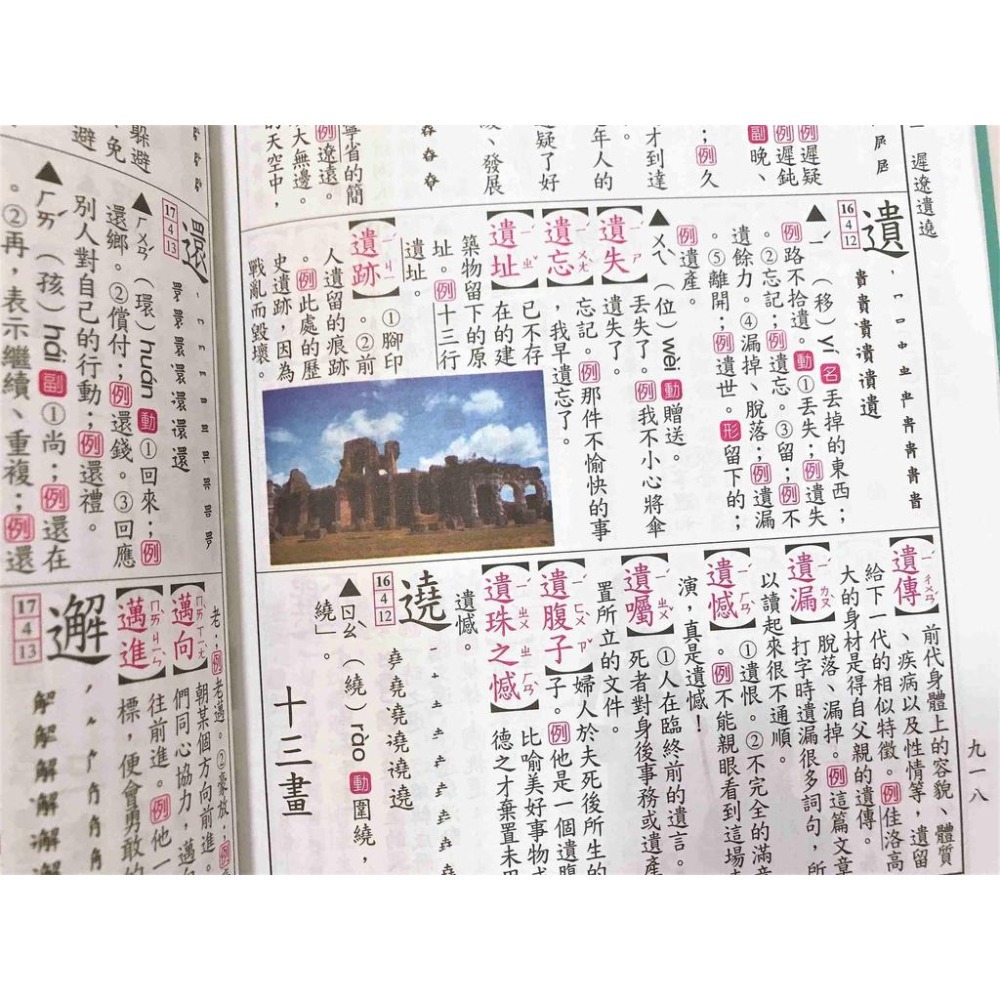 遲遼遺遶
九一八
例遲疑
例遲鈍
副晚、
；例久
才到達
老年人的
疑了好
、發展
寧省的簡
例遼遠。
大無邊。
的天空中，
遺
16
4
12
貴貴貴遺遺遺
▲ㄧˊ（移）yí 名丟掉的東西；
例路不拾遺。動①丟失；例遺失
。②忘記；例遺忘。③留；例不
遺餘力。④漏掉、脫落；例遺漏
。⑤離開；例遺世。形留下的；
例遺產。
▲ㄨㄟˋ（位）wèi 動贈送。
【遺失】丟失了。例我不小心將傘
遺失了。
【遺忘】忘記。例那件不愉快的事
，我早遺忘了。
【遺址】已不存在的建
築物留下的原
址。例十三行
遺址。
【遺跡】①腳印
。②前
人遺留的痕跡
。例此處的歷
史遺跡，因為
戰亂而毀壞。
【遺傳】前代身體上的容貌、體質
、疾病以及性情等，遺留
給下一代的相似特徵。例佳洛高
大的身材是得自父親的遺傳。
【遺漏】脫落、漏掉。例這篇文章
打字時遺漏很多詞句，所
以讀起來很不通順。
【遺憾】①遺恨。②不完全的滿意
。例不能親眼看到這場
演，真是遺憾！
【遺囑】①人在臨終前的遺言。
死者對身後事務或遺產
置所立的文件
【遺腹子】婦人於夫死後所生的
子。例他是一個遺腹
【遺珠之憾】比喻美好事物或
德之才棄置未
遺憾。
遶
16
4
12
▲ㄖㄠˋ（繞）rào 動圍繞，
繞」。
十三畫
還
17
4
13
▲ㄏㄨㄢˊ（環）huán 動①回來；例
還鄉。②償付；例還錢。③回應
別人對自己的行動；例還禮。
▲ㄏㄞˊ（孩）hái 副①尚；例還在
。②再，表示繼續、重複；例還
躲避
、免
避
老；例老邁。②豪放；例
【邁向】朝某個方向前進。例
們同心協力，邁向
【邁進】往前進。例他一
標，便會勇敢的
邂
17
4
13